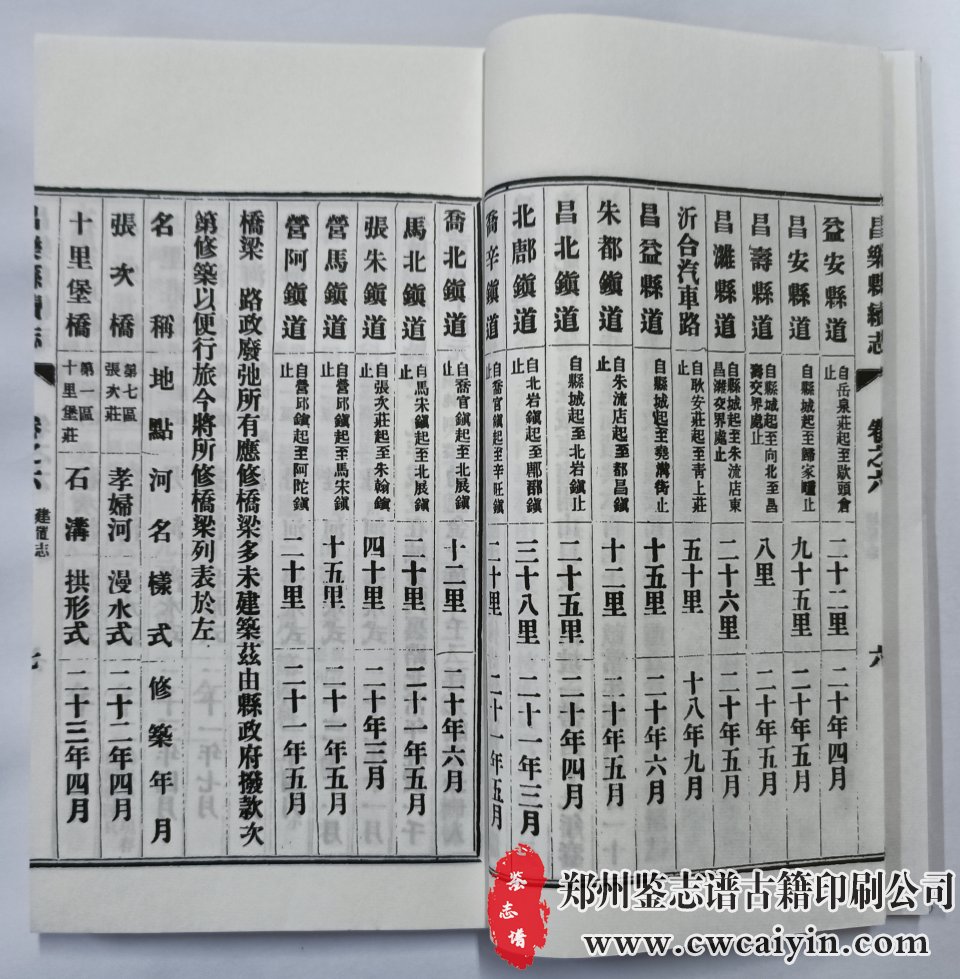 昌樂縣續志 卷之六 六
益安縣道 自岳泉莊起至歇頭倉止 二十二里 二十年四月
昌安縣道 自縣城起至歸家疃止 九十五里 二十年五月
昌壽縣道 自縣城起至向北至昌壽交界處止 八里 二十年五月
昌濰縣道 自縣城起至朱流店東昌濰交界處止 二十六里 二十年五月
沂合汽車路 自耿安莊起至青上莊止 五十里 十八年九月
昌益縣道 自縣城起至堯溝街止 十五里 二十年六月
朱都鎮道 自朱流店起至都昌鎮止 十二里 二十年五月
昌北鎮道 自縣城起至北岩鎮止 二十五里 二十年四月
北鄌鎮道 自北岩鎮起至鄌郚鎮止 三十八里 二十一年三月
喬辛鎮道 自喬官鎮起至辛旺鎮止 二十里 二十一年五月
喬北鎮道 自喬官鎮起至北展鎮止 十二里 二十年六月
馬北鎮道 自馬宋鎮起至北展鎮止 二十里 二十一年五月
張朱鎮道 自張次莊起至朱翰鎮止 四十里 二十年三月
營馬鎮道 自營邱鎮起至馬宋鎮止 十五里 二十一年五月
營阿鎮道 自營邱鎮起至阿陀鎮止 二十里 二十一年五月
橋梁 路政廢弛所有應修橋梁多未建築茲由縣政府撥款次
第修築以便行旅今將所修橋梁列表於左
名稱 地點 河名 樣式 修築年月
張次橋 第七區張次莊 孝婦河 漫水式 二十二年四月
十里堡橋 第一區十里堡莊 石溝 拱形式 二十三年四月
昌樂縣續志 卷之六 建置志 七
鉴志谱
郑州鉴志谱古籍印刷公司
www.cwcaiyin.com